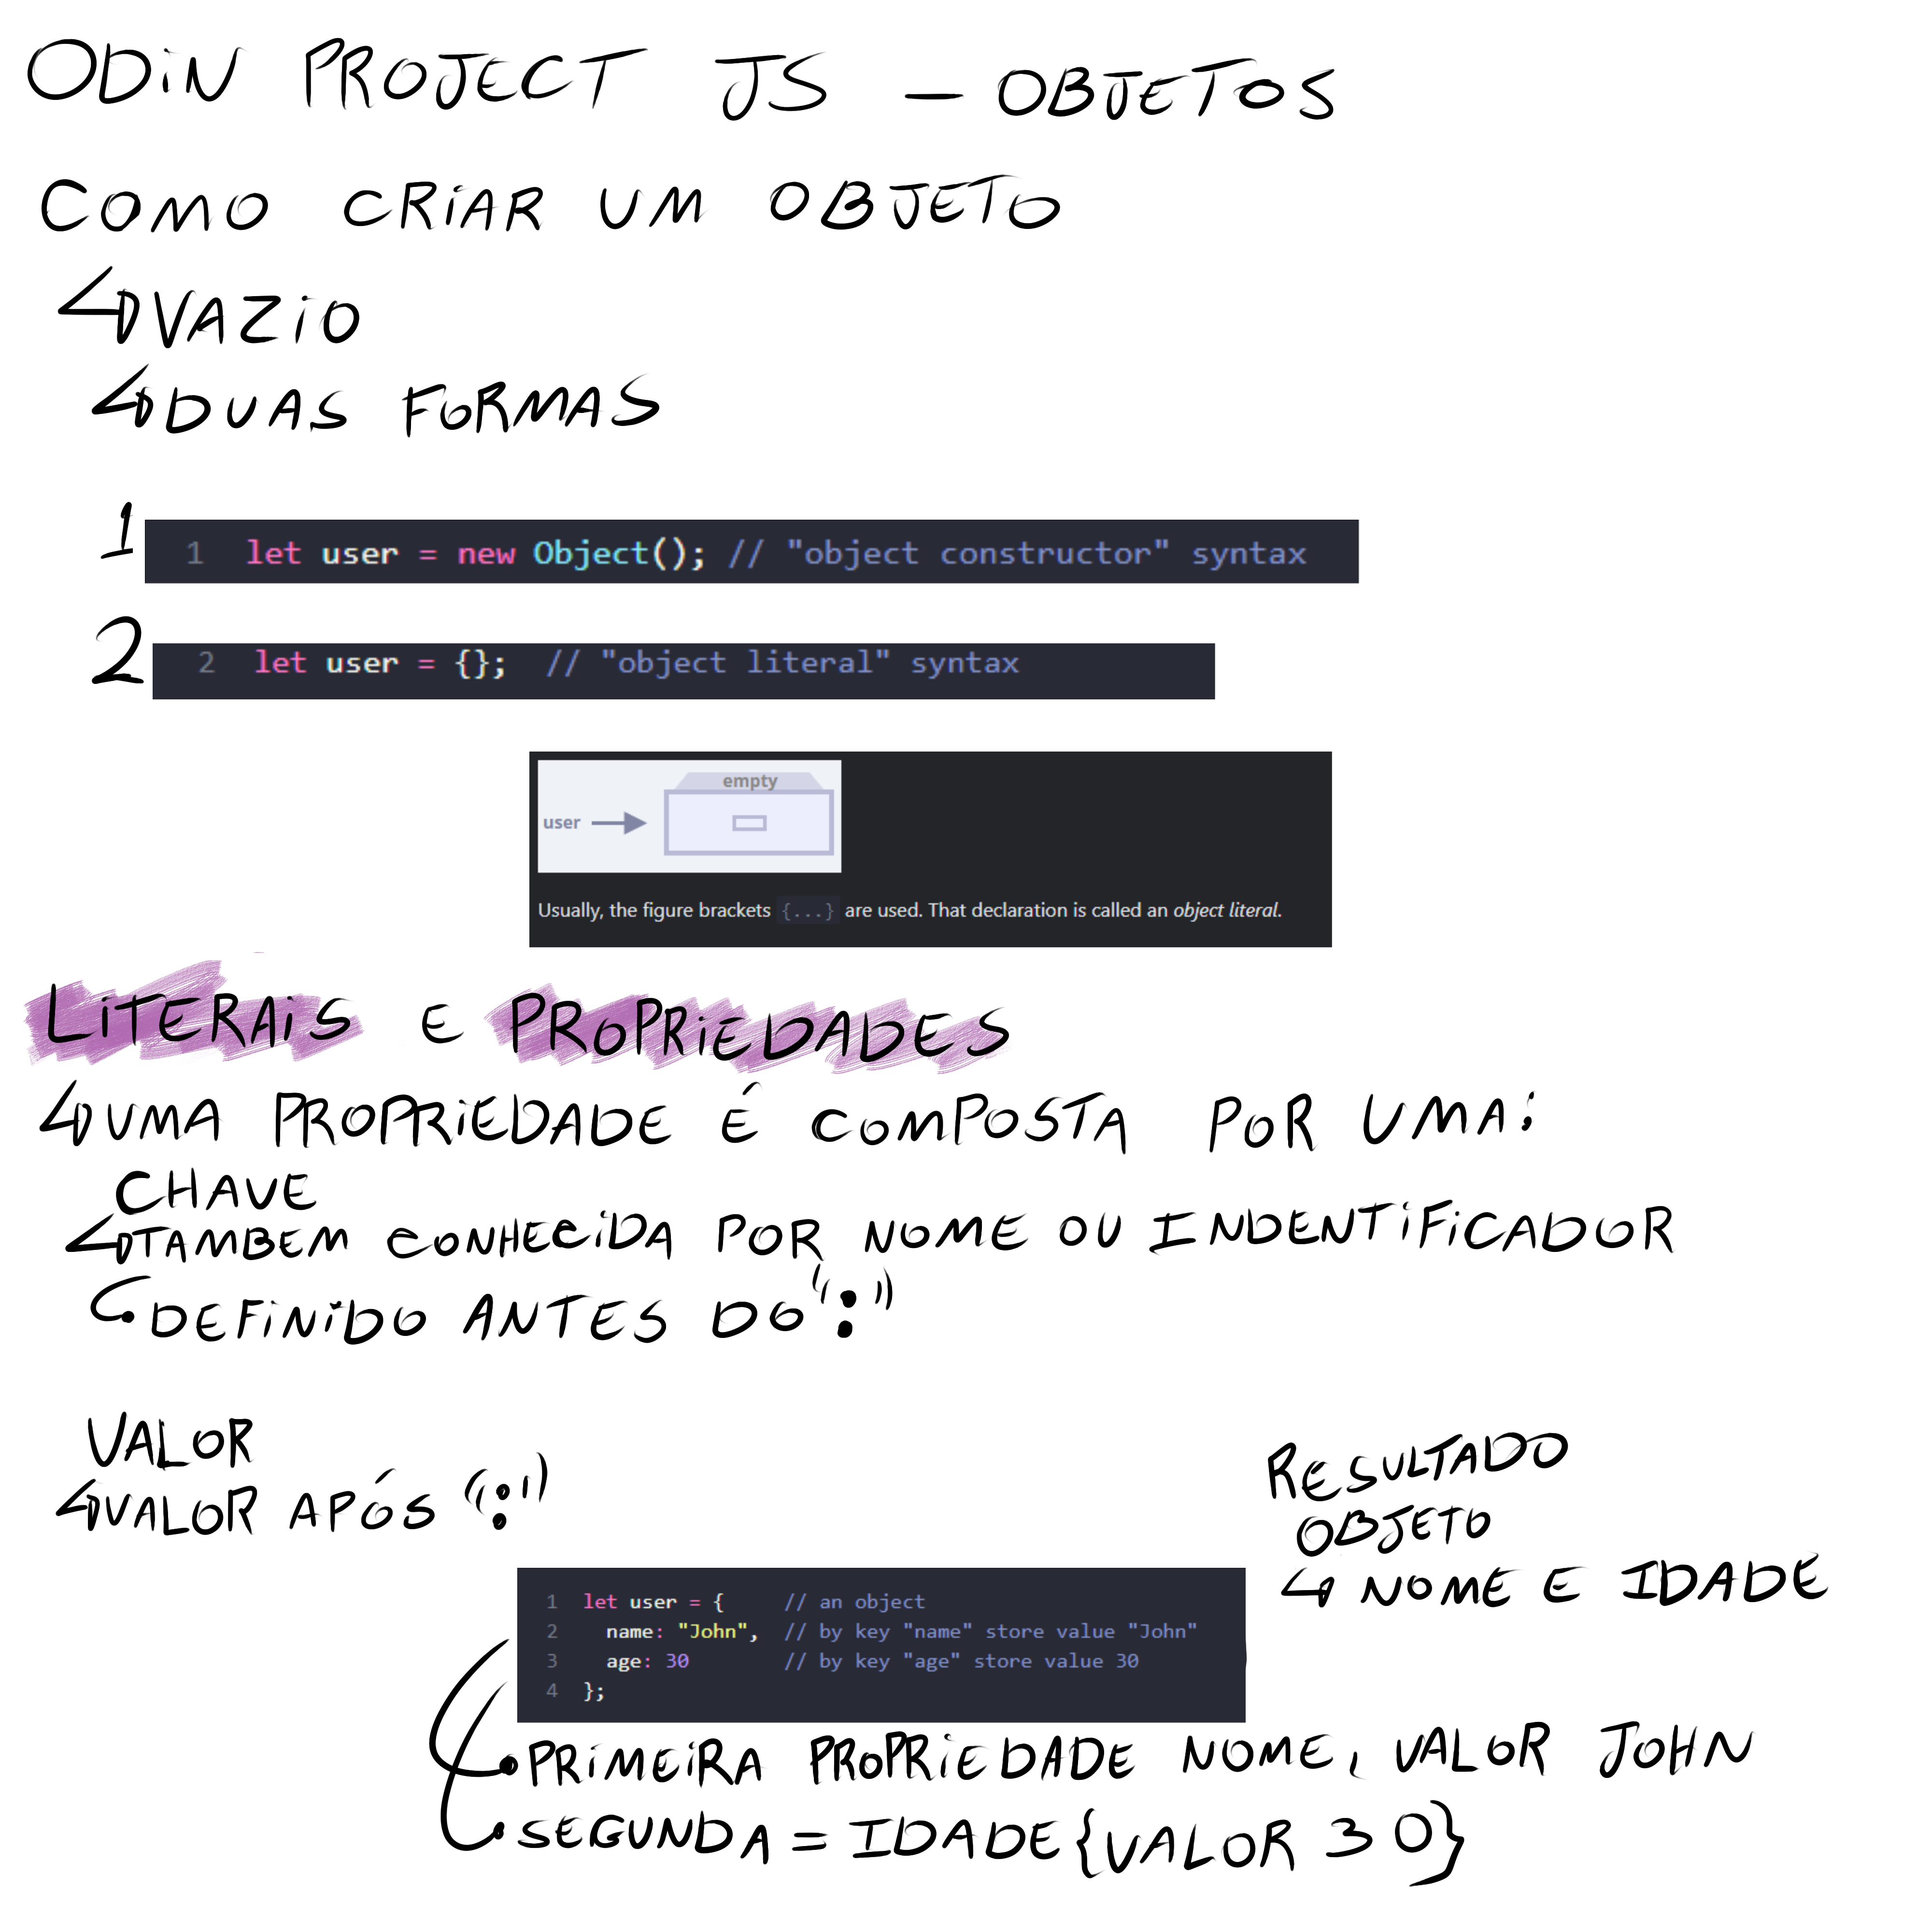 ODIN PROJECT JS — OBJETOS
COMO CRIAR UM OBJETO
VAZIO
DUAS FORMAS
1
1 let user = new Object(); // "object constructor" syntax
2
2 let user = {}; // "object literal" syntax
empty
user
Usually, the figure brackets {...} are used. That declaration is called an object literal.
LITERAIS E PROPRIEDADES
UMA PROPRIEDADE É COMPOSTA POR UMA:
CHAVE
TAMBEM CONHECIDA POR NOME OU INDENTIFICADOR
DEFINIDO ANTES DO ":"
VALOR
VALOR APÓS ":"
RESULTADO
OBJETO
NOME E IDADE
1 let user = { // an object
2 name: "John", // by key "name" store value "John"
3 age: 30 // by key "age" store value 30
4 };
PRIMEIRA PROPRIEDADE NOME, VALOR JOHN
SEGUNDA = IDADE {VALOR 30}